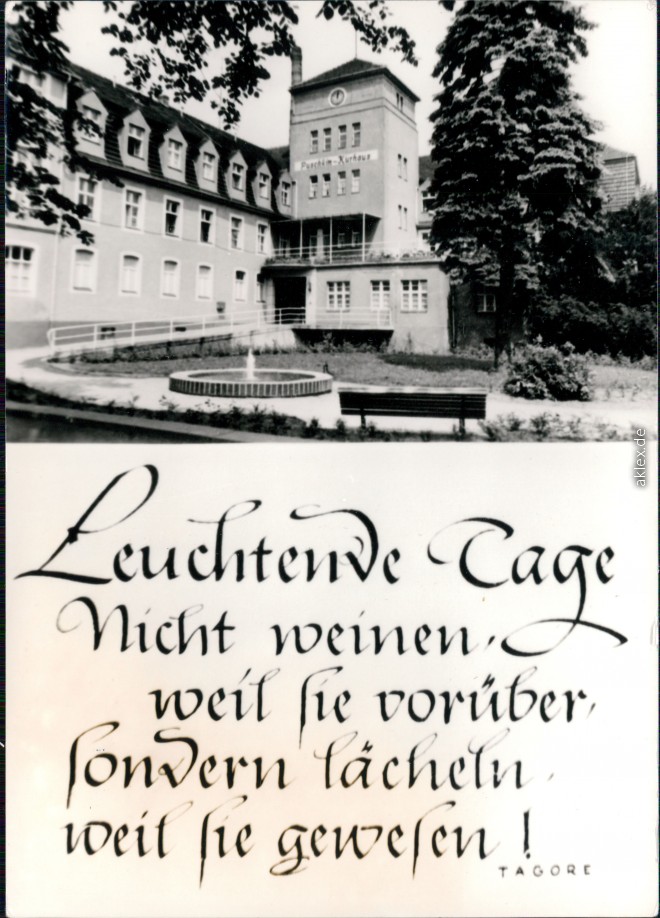 Puschkin-Kurhaus
aklex.de
Leuchtende Tage
Nicht weinen,
weil sie vorüber,
sondern lächeln,
weil sie gewesen!
TAGORE